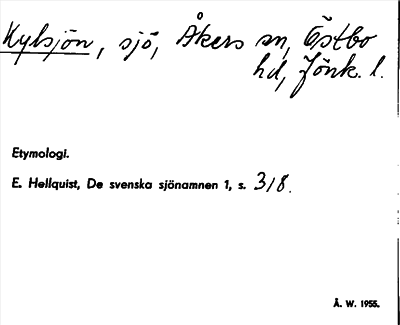 Kylsjön, sjö, Åkers sn, Östbo
hd, Jönk. l.
Etymologi.
E. Hellquist, De svenska sjönamnen 1, s. 318.
Å. W. 1955.